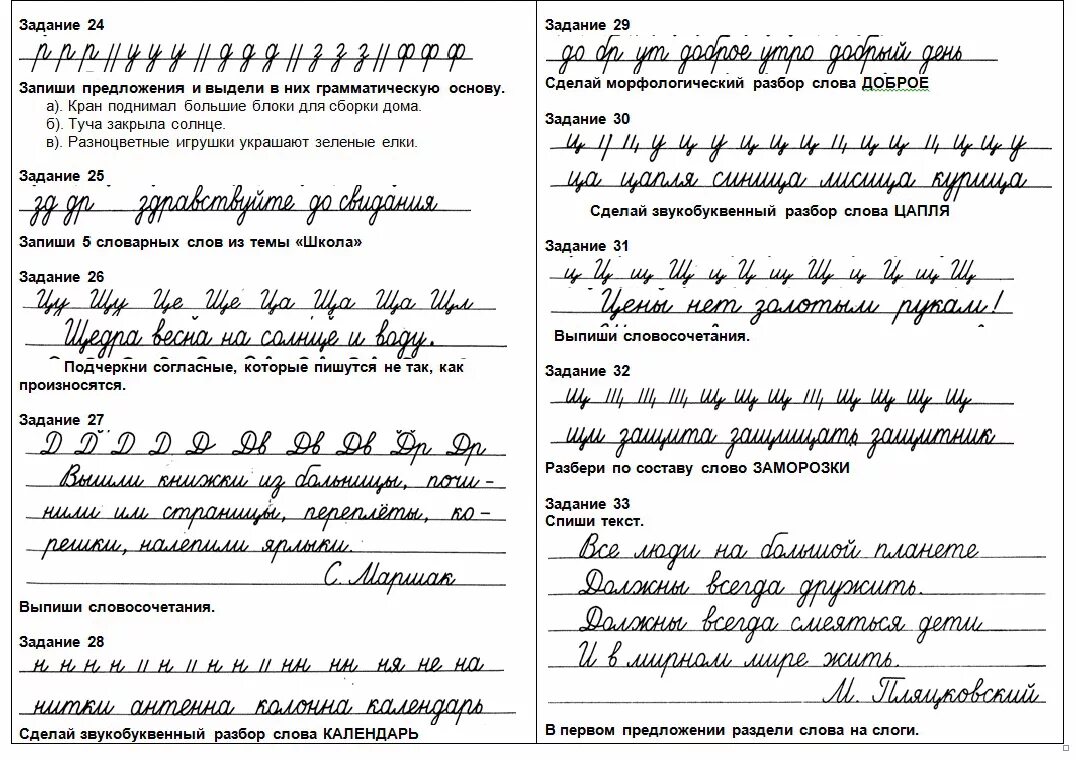 Задание 24
р р р // у у у // д д д // з з з // ф ф ф
Запиши предложения и выдели в них грамматическую основу.
а). Кран поднимал большие блоки для сборки дома.
б). Туча закрыла солнце.
в). Разноцветные игрушки украшают зеленые елки.
Задание 25
зд др здравствуйте до свидания
Запиши 5 словарных слов из темы «Школа»
Задание 26
Цу Щу Це Ще Ца Ща Ща Щл
Щедра весна на солнце и воду.
Подчеркни согласные, которые пишутся не так, как
произносятся.
Задание 27
Д Д Д Д Д Дв Дв Дв Др Др
Вышли книжки из больницы, почи -
нили им страницы, переплёты, ко -
решки, налепили ярлыки.
С. Маршак
Выпиши словосочетания.
Задание 28
н н н н // н // н н // нн нн ня не на
нитки антенна колонна календарь
Сделай звукобуквенный разбор слова КАЛЕНДАРЬ
Задание 29
до бр ут доброе утро добрый день
Сделай морфологический разбор слова ДОБРОЕ
Задание 30
ца цапля синица лисица курица
Сделай звукобуквенный разбор слова ЦАПЛЯ
Задание 31
ц Ц щ Щ ц Ц щ Щ ц Ц щ Щ
Цены нет золотым рукам!
Выпиши словосочетания.
Задание 32
щи защита защищать защитник
Разбери по составу слово ЗАМОРОЗКИ
Задание 33
Спиши текст.
Все люди на большой планете
Должны всегда дружить.
Должны всегда смеяться дети
И в мирном мире жить.
М. Пляцковский
В первом предложении раздели слова на слоги.